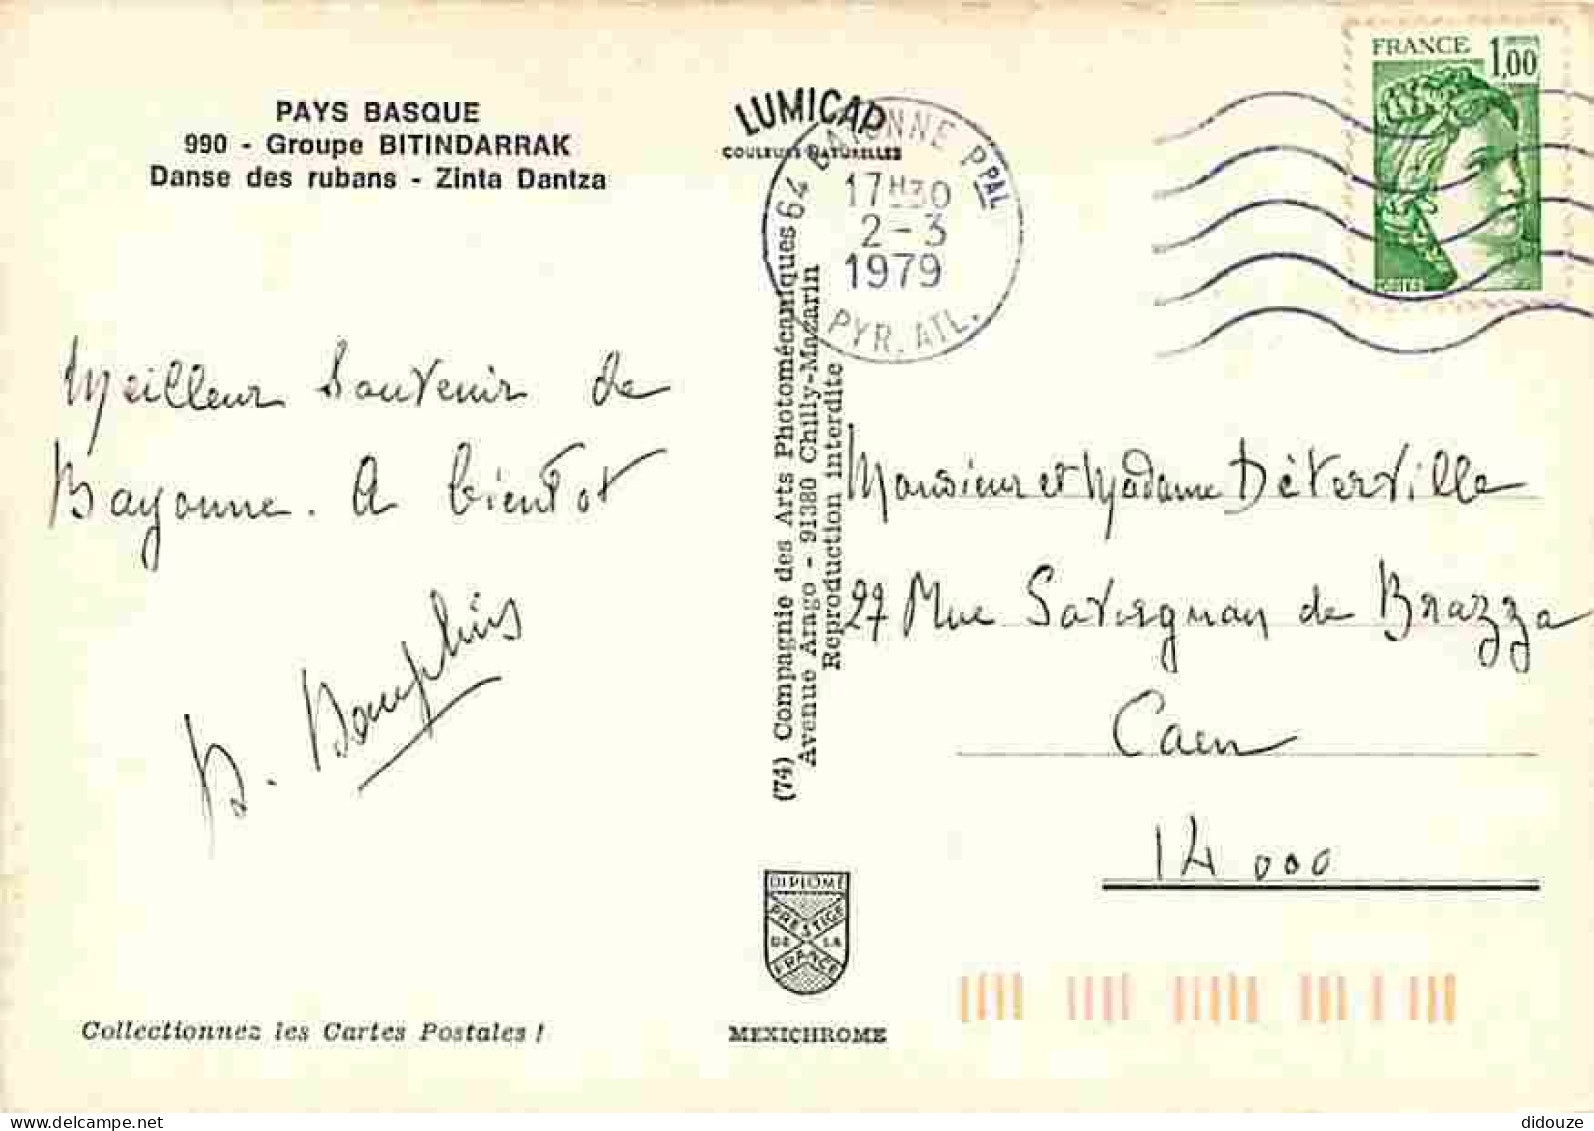 PAYS BASQUE
990 - Groupe BITINDARRAK
Danse des rubans - Zinta Dantza
LUMICAP
COULEURS NATURELLES
64 BAYONNE PPAL
17H30
2-3
1979
PYR. ATL.
FRANCE 1,00
POSTES
Meilleur Souvenir de
Bayonne. A bientot
(74) Compagnie des Arts Photomécaniques
Avenue Arago - 91380 Chilly-Mazarin
Reproduction interdite
Monsieur et Madame Déterville
27 Rue Savorgnan de Brazza
Caen
14 000
DIPLOME
PRESTIGE
DE LA
FRANCE
Collectionnez les Cartes Postales !
MEXICHROME
delcampe.net
didouze